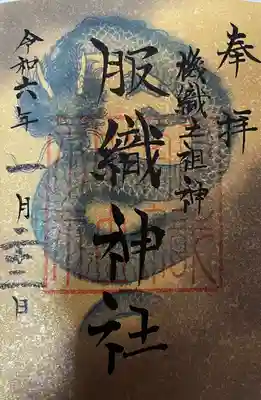 奉拝
機織之祖神
服織神社
令和六年 一月二十二日